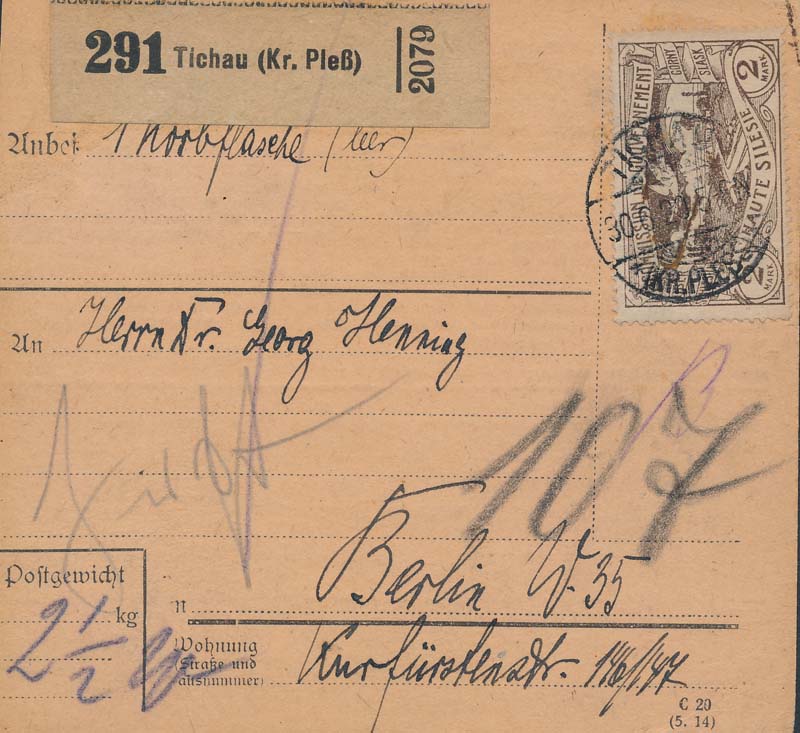 291 Tichau (Kr. Pleß) 2079
Anbei 1 Korbflasche (leer)
COMMISSION DE GOUVERNEMENT
HAUTE SILESIE
GÓRNY ŚLĄSK
2 MARK
2 MARK
(KR. PLESS)
An Herrn Dr. Georg Henning
107
Berlin W. 35
Postgewicht
2 1/2 kg
n
Wohnung
(Straße und
Hausnummer)
Kurfürstenstr. 146/147
C 20
(5. 14)